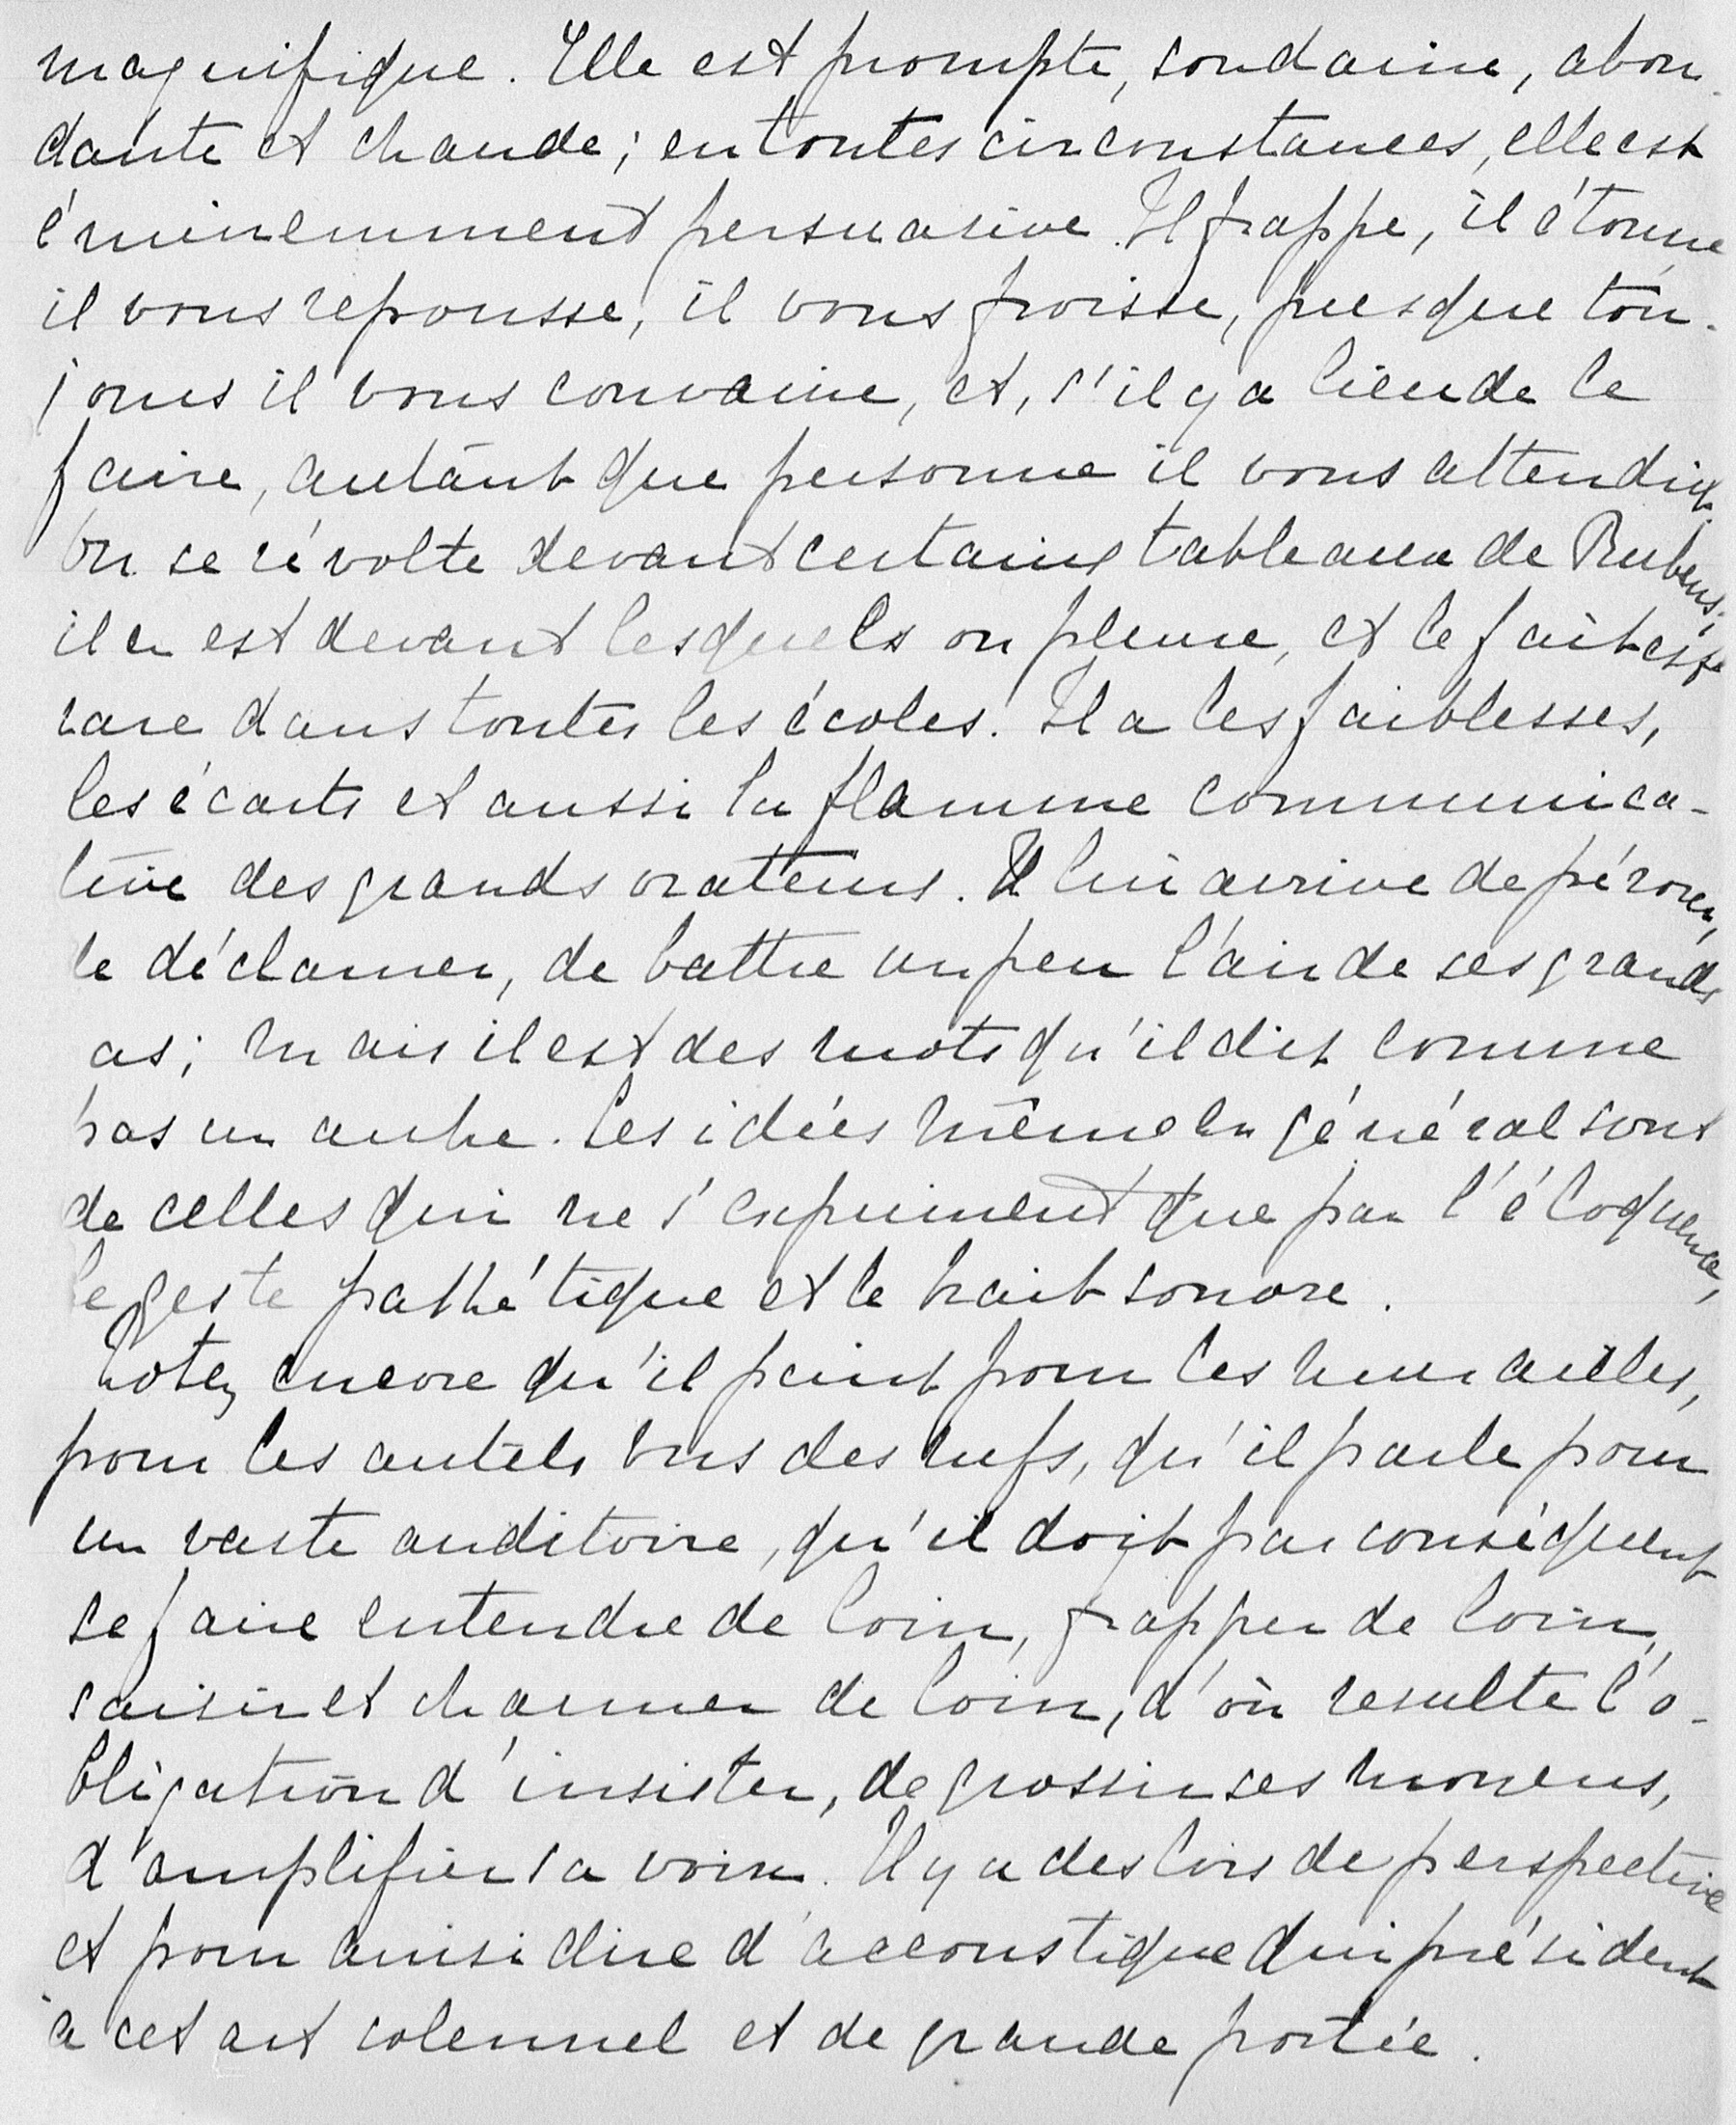 magnifique. Elle est prompte, soudaine, abon-
dante et chaude; en toutes circonstances, elle est
éminemment persuasive. Il frappe, il étonne
il vous repousse, il vous froisse, presque tou-
jours il vous convainc, et, s'il y a lieu de le
faire, autant que personne il vous attendrit.
On se révolte devant certains tableaux de Rubens;
il en est devant lesquels on pleure, et le fait est
rare dans toutes les écoles. Il a les faiblesses,
les écarts et aussi la flamme communica-
tive des grands orateurs. Il lui arrive de pérorer,
de déclamer, de battre un peu l'air de ses grands
as; mais il est des mots qu'il dit comme
pas un autre. Ses idées même en général sont
de celles qui ne s'expriment que par l'éloquence,
le geste pathétique et le trait sonore.
Notez encore qu'il peint pour les murailles,
pour les autels vus des nefs, qu'il parle pour
un vaste auditoire, qu'il doit par conséquent
se faire entendre de loin, frapper de loin,
saisir et charmer de loin, d'où resulte l'o-
bligation d'insister, de grossir ses moyens,
d'amplifier sa voix. Il y a des lois de perspective
et pour ainsi dire d'accoustique qui président
à cet art solennel et de grande portée.